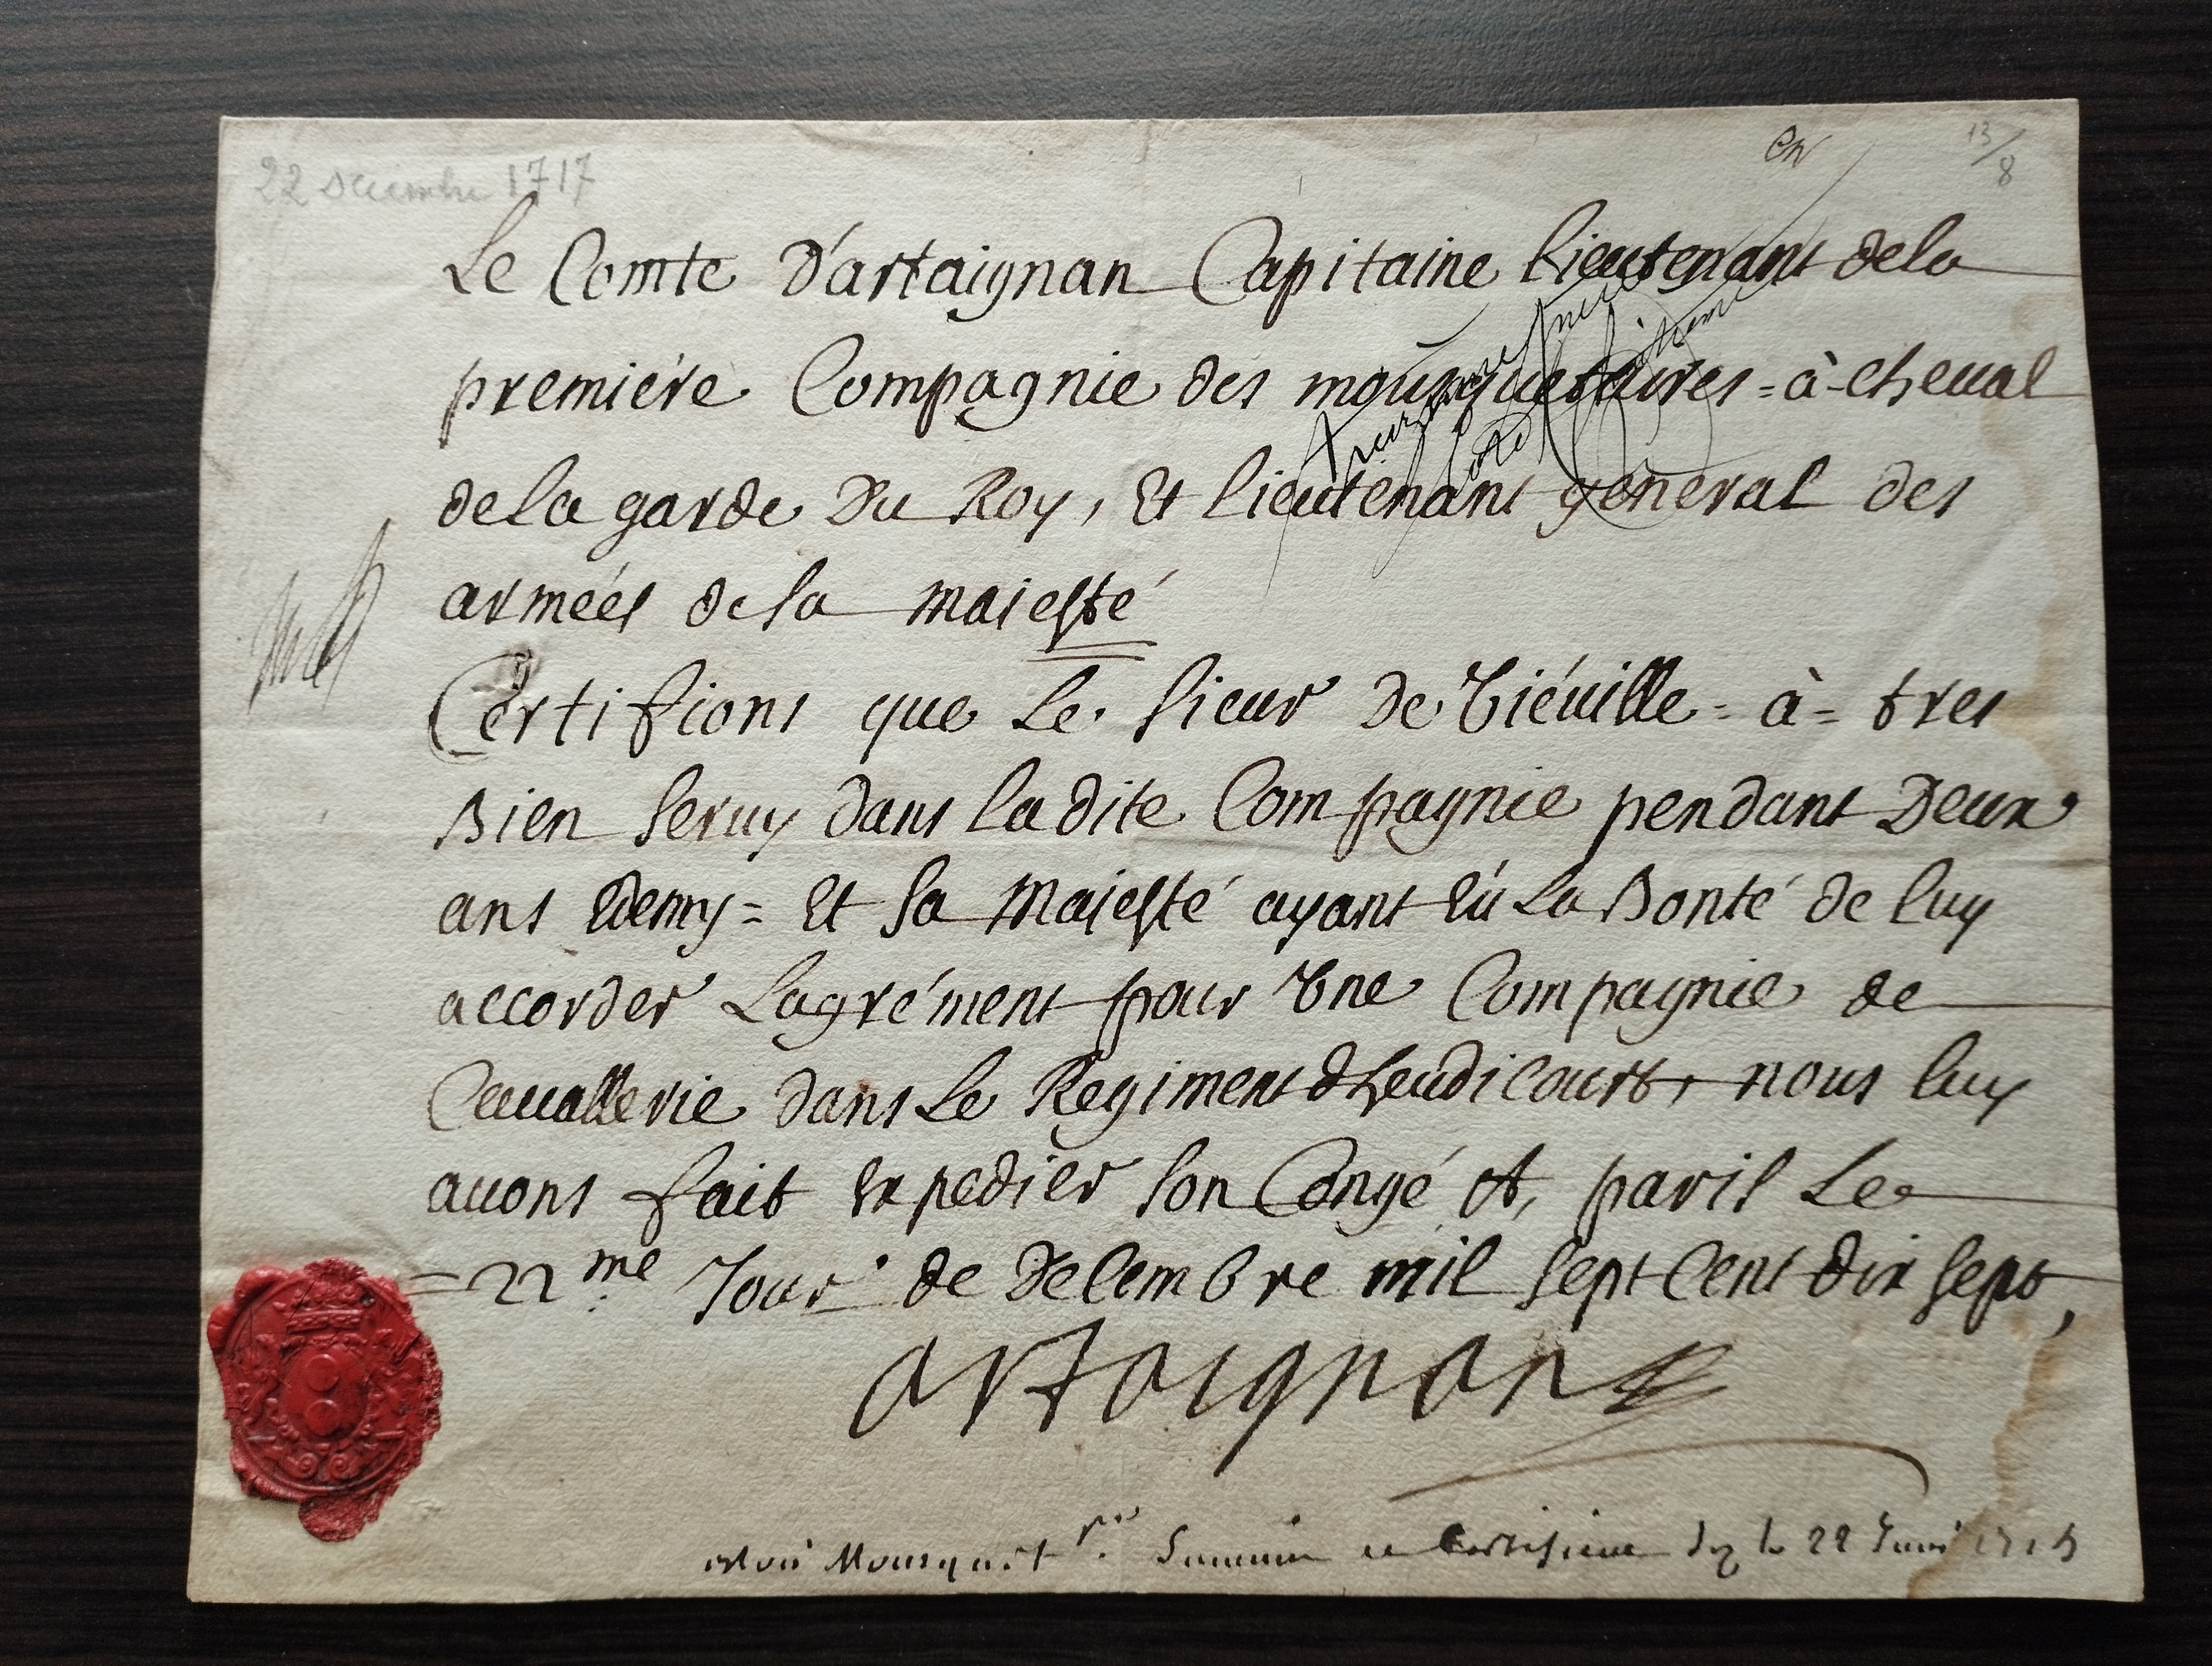 22 Decembre 1717
en
13/8
Le Comte d'artaignan Capitaine lieutenant dela
premiére Compagnie des mousquetaires = à - cheual
dela garde Du Roy, Et lieutenant general des
armées de sa maiesté
Certifions que Le sieur De Tiéuille = à = tres
Bien seruy dans ladite Compagnie pendant Deux
ans Edemy = Et sa Maiesté ayant Eú La Bonté de luy
accorder Lagrément pour Vne Compagnie de
Cauallerie dans Le Regiment dheudicourt, nous luy
auons fait Expedier son Congé A, paris Le
= 22me Jour de Decembre mil sept Cent dix sept,
artaignan
Mousquet Suiuin ce Certificat du 22